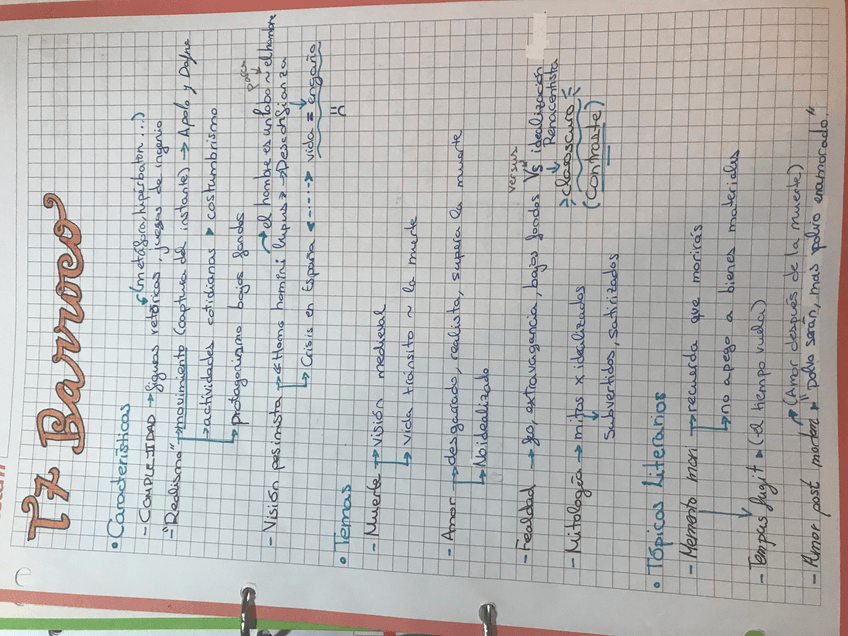 T7 Barroco
• Características
- COMPLEJIDAD → figuras retóricas, juegos de ingenio
(metáfora, hiperbaton...)
- "Realismo" → movimiento (captura del instante) → Apolo y Dafne
→ actividades cotidianas → costumbrismo
→ protagonismo bajos fondos
- Visión pesimista → "Homo homini lupus" → Desconfianza
el hombre es un lobo ~ el hombre
para
→ Crisis en España ← - - - → vida = engaño
• Temas
- Muerte → visión medieval
→ vida tránsito ~ la muerte
- Amor → desgarrado, realista, supera la muerte
→ No idealizado
versus
- Fealdad → feo, extravagancia, bajos fondos Vs idealización
Renacentista
- Mitología → mitos x idealizados
claroscuro
(contraste)
Subvertidos, satirizados
• Tópicos Literarios
- Memento mori → recuerda que morirás
→ no apego a bienes materiales
- Tempus fugit → (el tiempo vuela)
→ (Amor después de la muerte)
- Amor post mortem → "polvo serán, mas polvo enamorado."